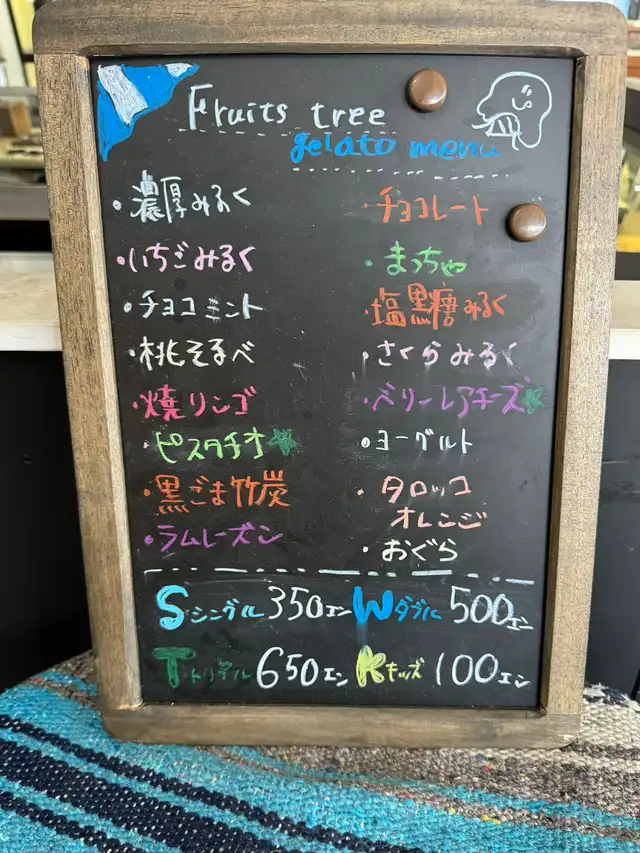 Fruits tree
gelato menu
・濃厚みるく
・いちごみるく
・チョコミント
・桃そるべ
・焼リンゴ
・ピスタチオ★
・黒ごま竹炭
・ラムレーズン
・チョコレート
・まっちゃ
・塩黒糖みるく
・さくらみるく
・ベリーレアチーズ★
・ヨーグルト
・タロッコ
オレンジ
・おぐら
Sシングル 350エン Wダブル 500エン
Tトリプル 650エン Kキッズ 100エン